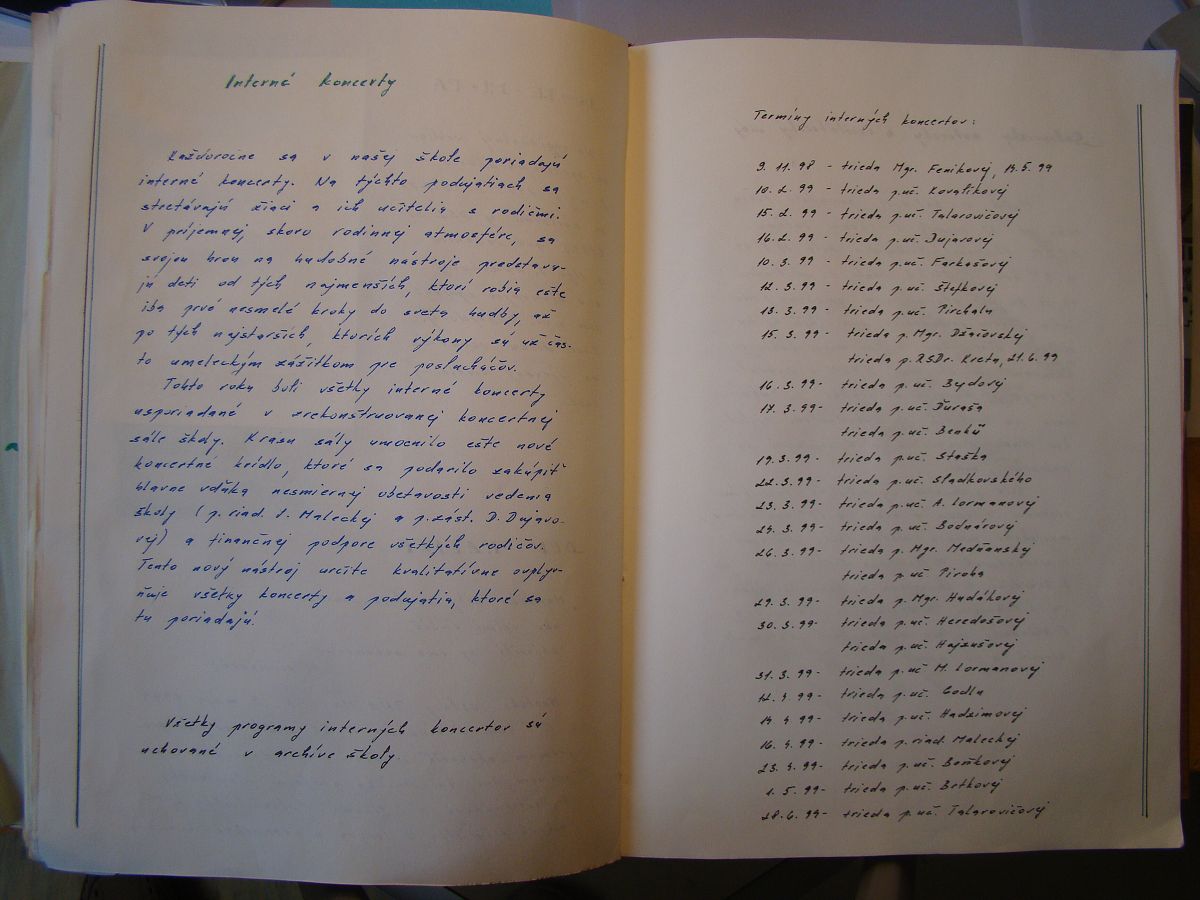 Interné koncerty
Každoročne sa v našej škole poriadajú
interné koncerty. Na týchto podujatiach sa
stretávajú žiaci a ich učitelia s rodičmi.
V príjemnej, skoro rodinnej atmosfére, sa
svojou hrou na hudobné nástroje predstavu-
jú deti od tých najmenších, ktorí robia ešte
iba prvé nesmelé kroky do sveta hudby, až
po tých najstarších, ktorých výkony sú už čas-
to umeleckým zážitkom pre poslucháčov.
Tohto roku boli všetky interné koncerty
usporiadané v zrekonštruovanej koncertnej
sále školy. Krásu sály umocnilo ešte nové
koncertné krídlo, ktoré sa podarilo zakúpiť
hlavne vďaka nesmiernej obetavosti vedenia
školy (p. riad. J. Maleckej a p. zást. D. Dujavo-
vej) a finančnej podpore všetkých rodičov.
Tento nový nástroj určite kvalitatívne ovplyv-
ňuje všetky koncerty a podujatia, ktoré sa
tu poriadajú.
Všetky programy interných koncertov sú
uchované v archíve školy.
Termíny interných koncertov:
9. 11. 98 - trieda Mgr. Fenikovej, 14.5. 99
10. 2. 99 - trieda p.uč. Kovalíkovej
15. 2. 99 - trieda p.uč. Talarovičovej
16. 2. 99 - trieda p.uč. Dujavovej
10. 3. 99 - trieda p.uč. Farkašovej
12. 3. 99 - trieda p.uč. Štefkovej
13. 3. 99 - trieda p.uč. Pirchalu
15. 3. 99 - trieda p. Mgr. Džačovskej
trieda p. RSDr. Kreta, 21. 6. 99
16. 3. 99 - trieda p.uč. Bydovej
17. 3. 99 - trieda p.uč. Ďuraša
trieda p.uč. Benků
19. 3. 99 - trieda p.uč. Staška
22. 3. 99 - trieda p.uč. Sladkovského
23. 3. 99 - trieda p.uč. A. Lormanovej
24. 3. 99 - trieda p.uč. Bodnárovej
26. 3. 99 - trieda p. Mgr. Medňanskej
trieda p.uč. Piroha
29. 3. 99 - trieda p. Mgr. Hudákovej
30. 3. 99 - trieda p.uč. Heredošovej
trieda p.uč. Hajzušovej
31. 3. 99 - trieda p.uč. M. Lormanovej
12. 4. 99 - trieda p.uč. Godlu
14. 4. 99 - trieda p.uč. Hadzimovej
16. 4. 99 - trieda p. riad. Maleckej
23. 4. 99 - trieda p.uč. Bomkovej
1. 5. 99 - trieda p.uč. Brtkovej
28. 6. 99 - trieda p.uč. Talarovičovej